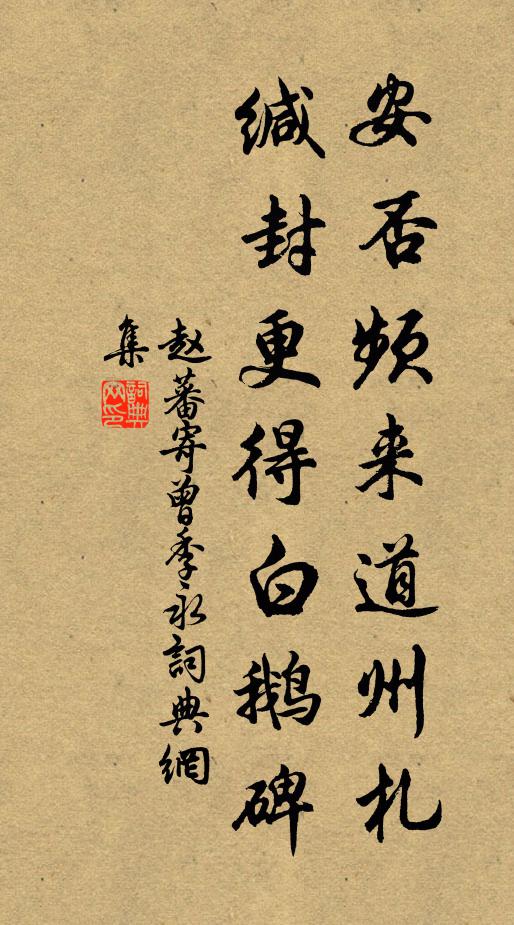 安否频来道州札
缄封更得白鹅碑
赵蕃寄曾季永詞典網
集
詞典网印